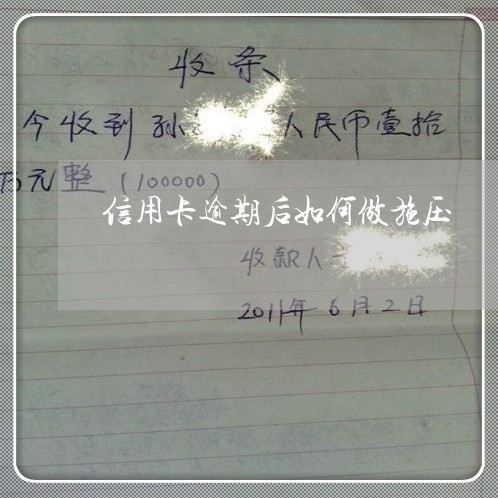 收条
今收到孙 人民币壹拾
万元整(100000)
信用卡逾期后如何做施压
收款人
2011年6月2日